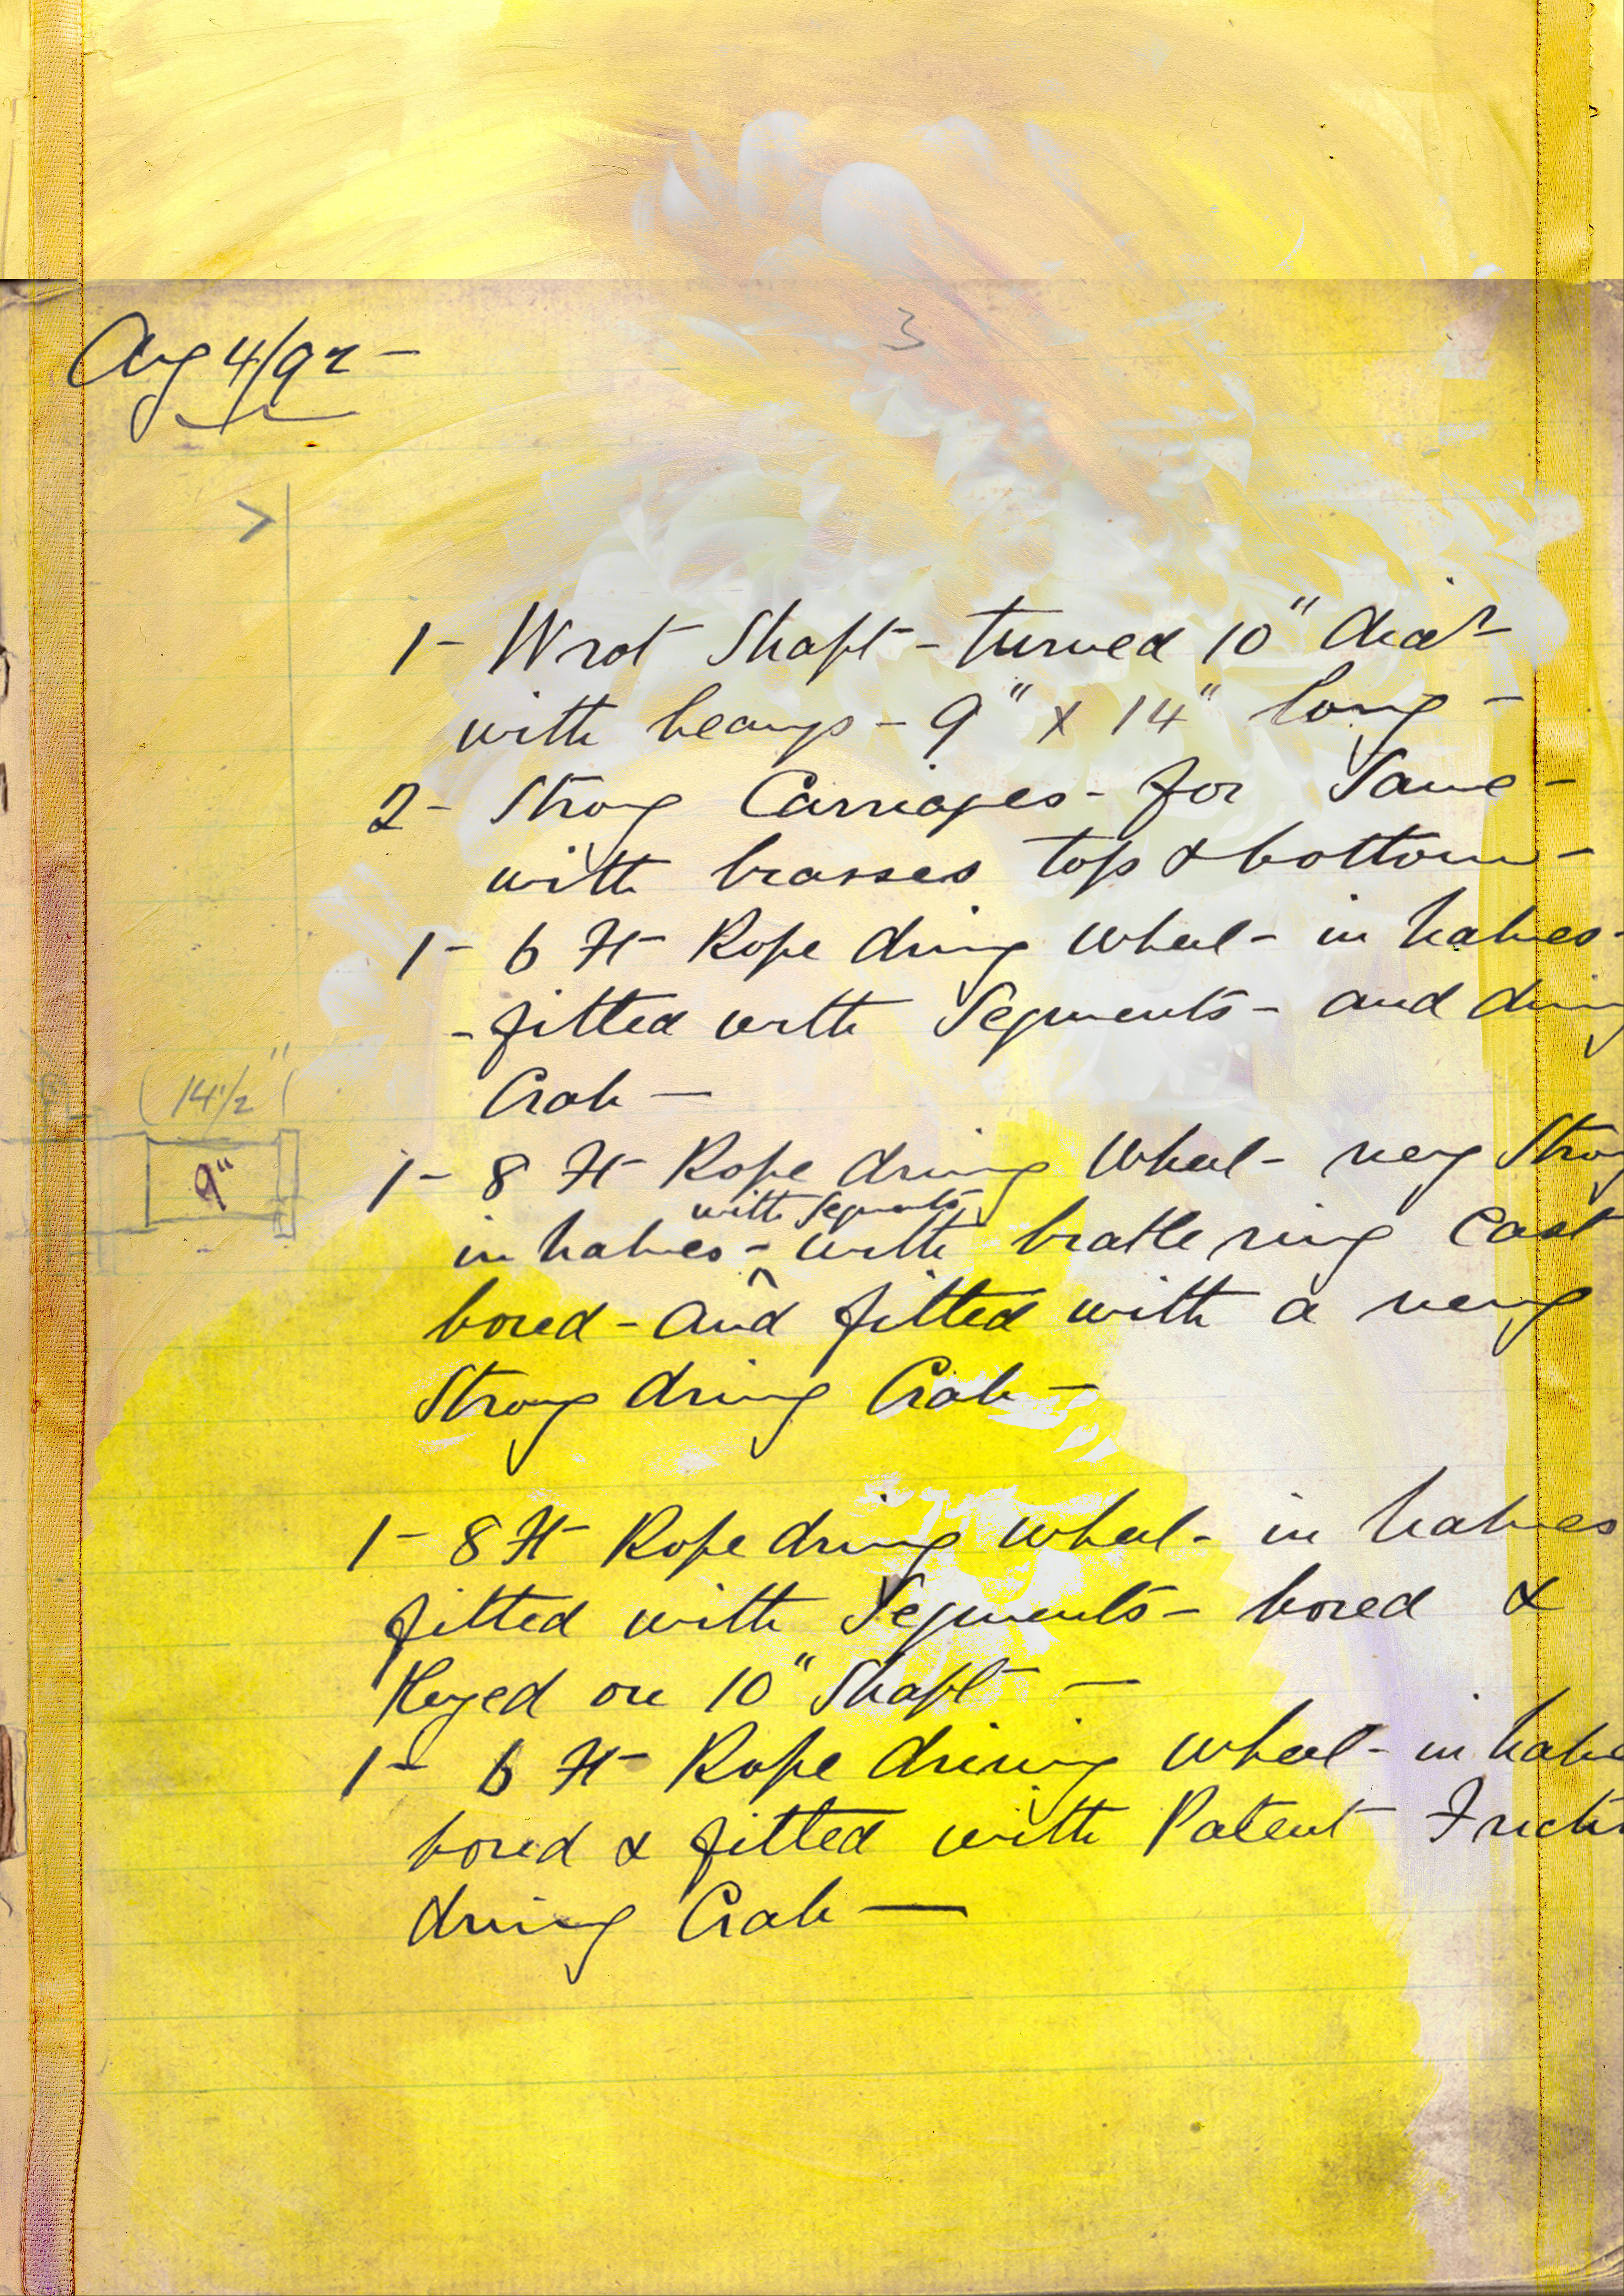 3
Aug 4/92 -
1 - Wrot Shaft - turned 10" diar
with bearings - 9" x 14" long -
2 - Strong Carriages - for Same -
with brasses top & bottom -
1 - 6 Ft Rope driving wheel - in halves -
- fitted with Segments - and driving
Crab -
14 1/2"
9"
1 - 8 Ft Rope driving Wheel - very Strong
with Segments
in halves - with ring cast
bored - and fitted with a very
Strong driving Crab -
1 - 8 Ft Rope driving wheel - in halves
fitted with Segments - bored &
Keyed on 10" Shaft -
1 - 6 Ft Rope driving wheel - in halve
bored & fitted with Patent Fricti
driving Crab -